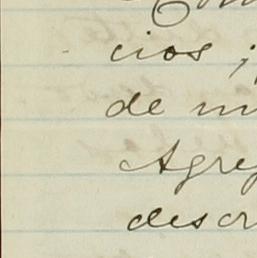 cios ;
de m
Agre
descr